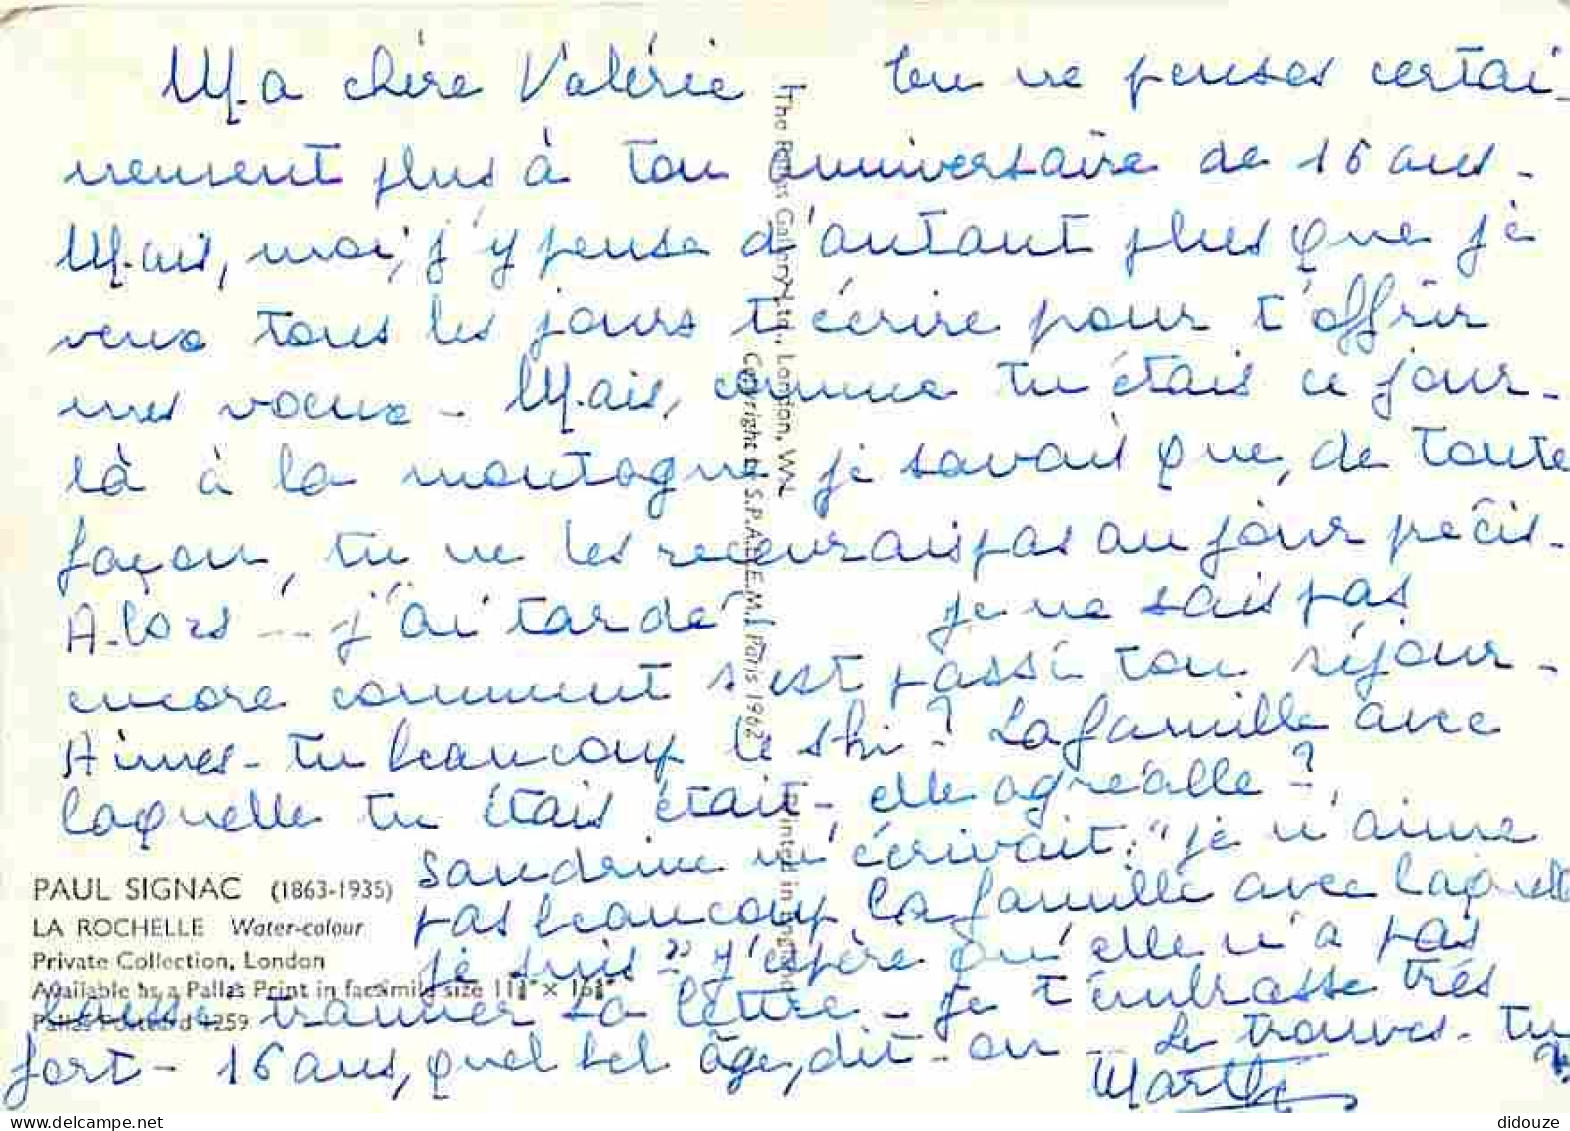 Ma chère Valérie tu ne penses certai-
nement plus à ton anniversaire de 16 ans.
Mais, moi, j'y pense d'autant plus que je
veux tous les jours t'écrire pour t'offrir
mes voeux - Mais, comme tu étais ce jour-
là à la montagne je savais que, de toute
façon, tu ne les recevrais pas au jour précis.
Alors... j'ai tardé je ne sais pas
encore comment s'est passé ton séjour -
Aimes-tu beaucoup le ski ? La famille avec
laquelle tu étais était-elle agréable ?
Sandrine m'écrivait : "je n'aime
pas beaucoup la famille avec laquelle
je suis" J'espère qu'elle n'a pas
laissé trainer sa lettre - Je t'embrasse très
fort - 16 ans, quel bel âge, dit-on - Le trouves-tu ?
Marthe
PAUL SIGNAC (1863-1935)
LA ROCHELLE Water-colour
Private Collection, London
Available as a Pallas Print in facsimile size
Pallas Postcard 1259
The Gallery Ltd., London, W.
Copyright by S.P.A.D.E.M., Paris 1962
Printed in England
didouze